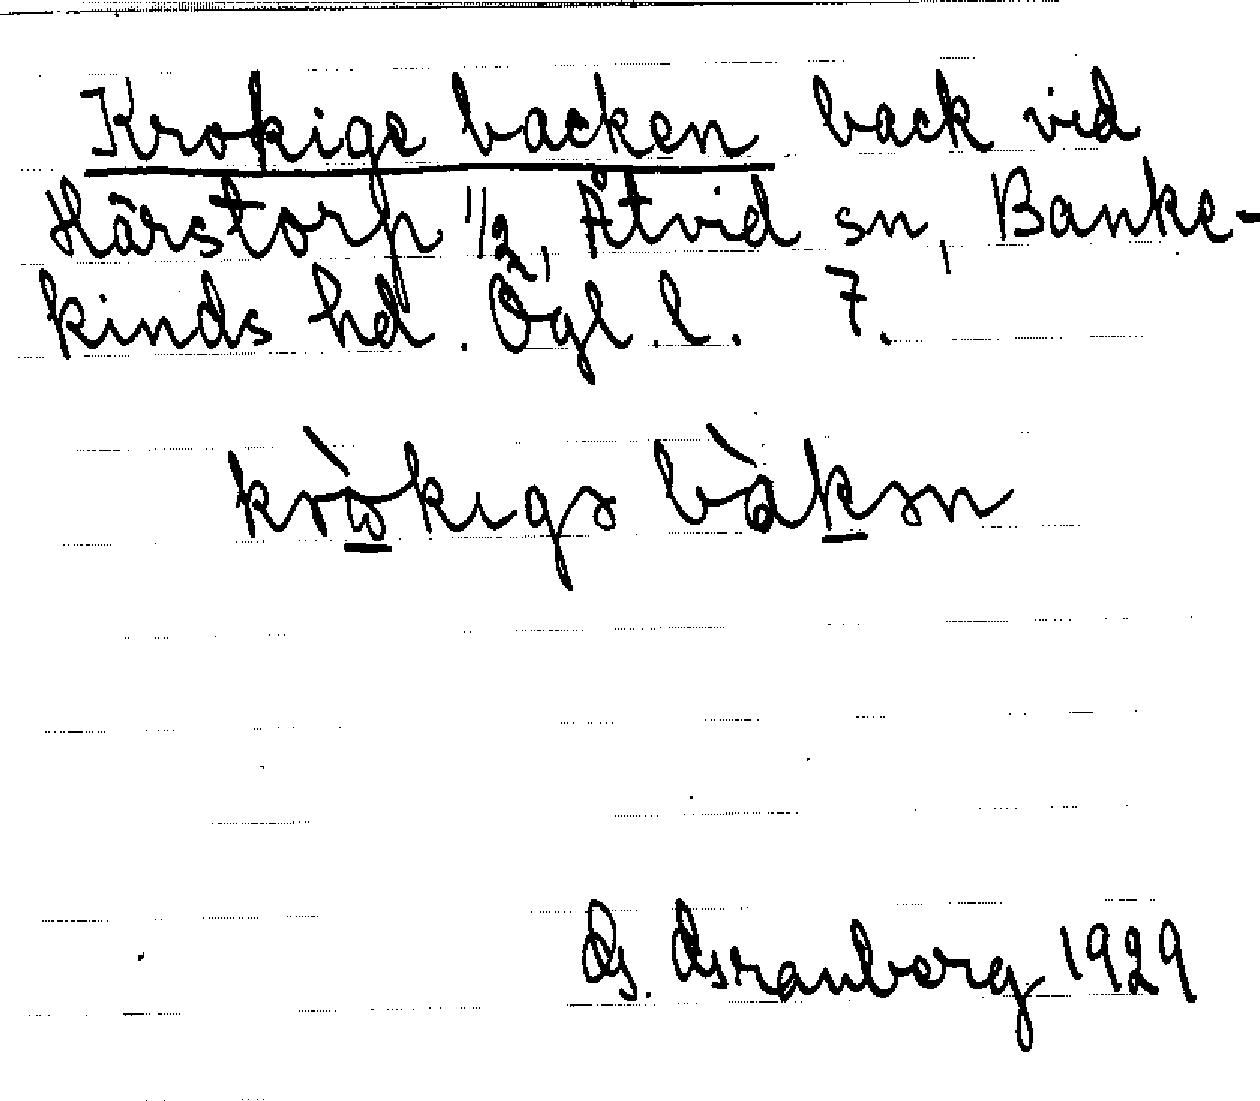 Krokige backen back vid
Härstorp 1/2, Åtvid sn, Banke-
kinds hd. Ögl. l. 7.
krὼkıgə bàkən
G. Granberg 1929